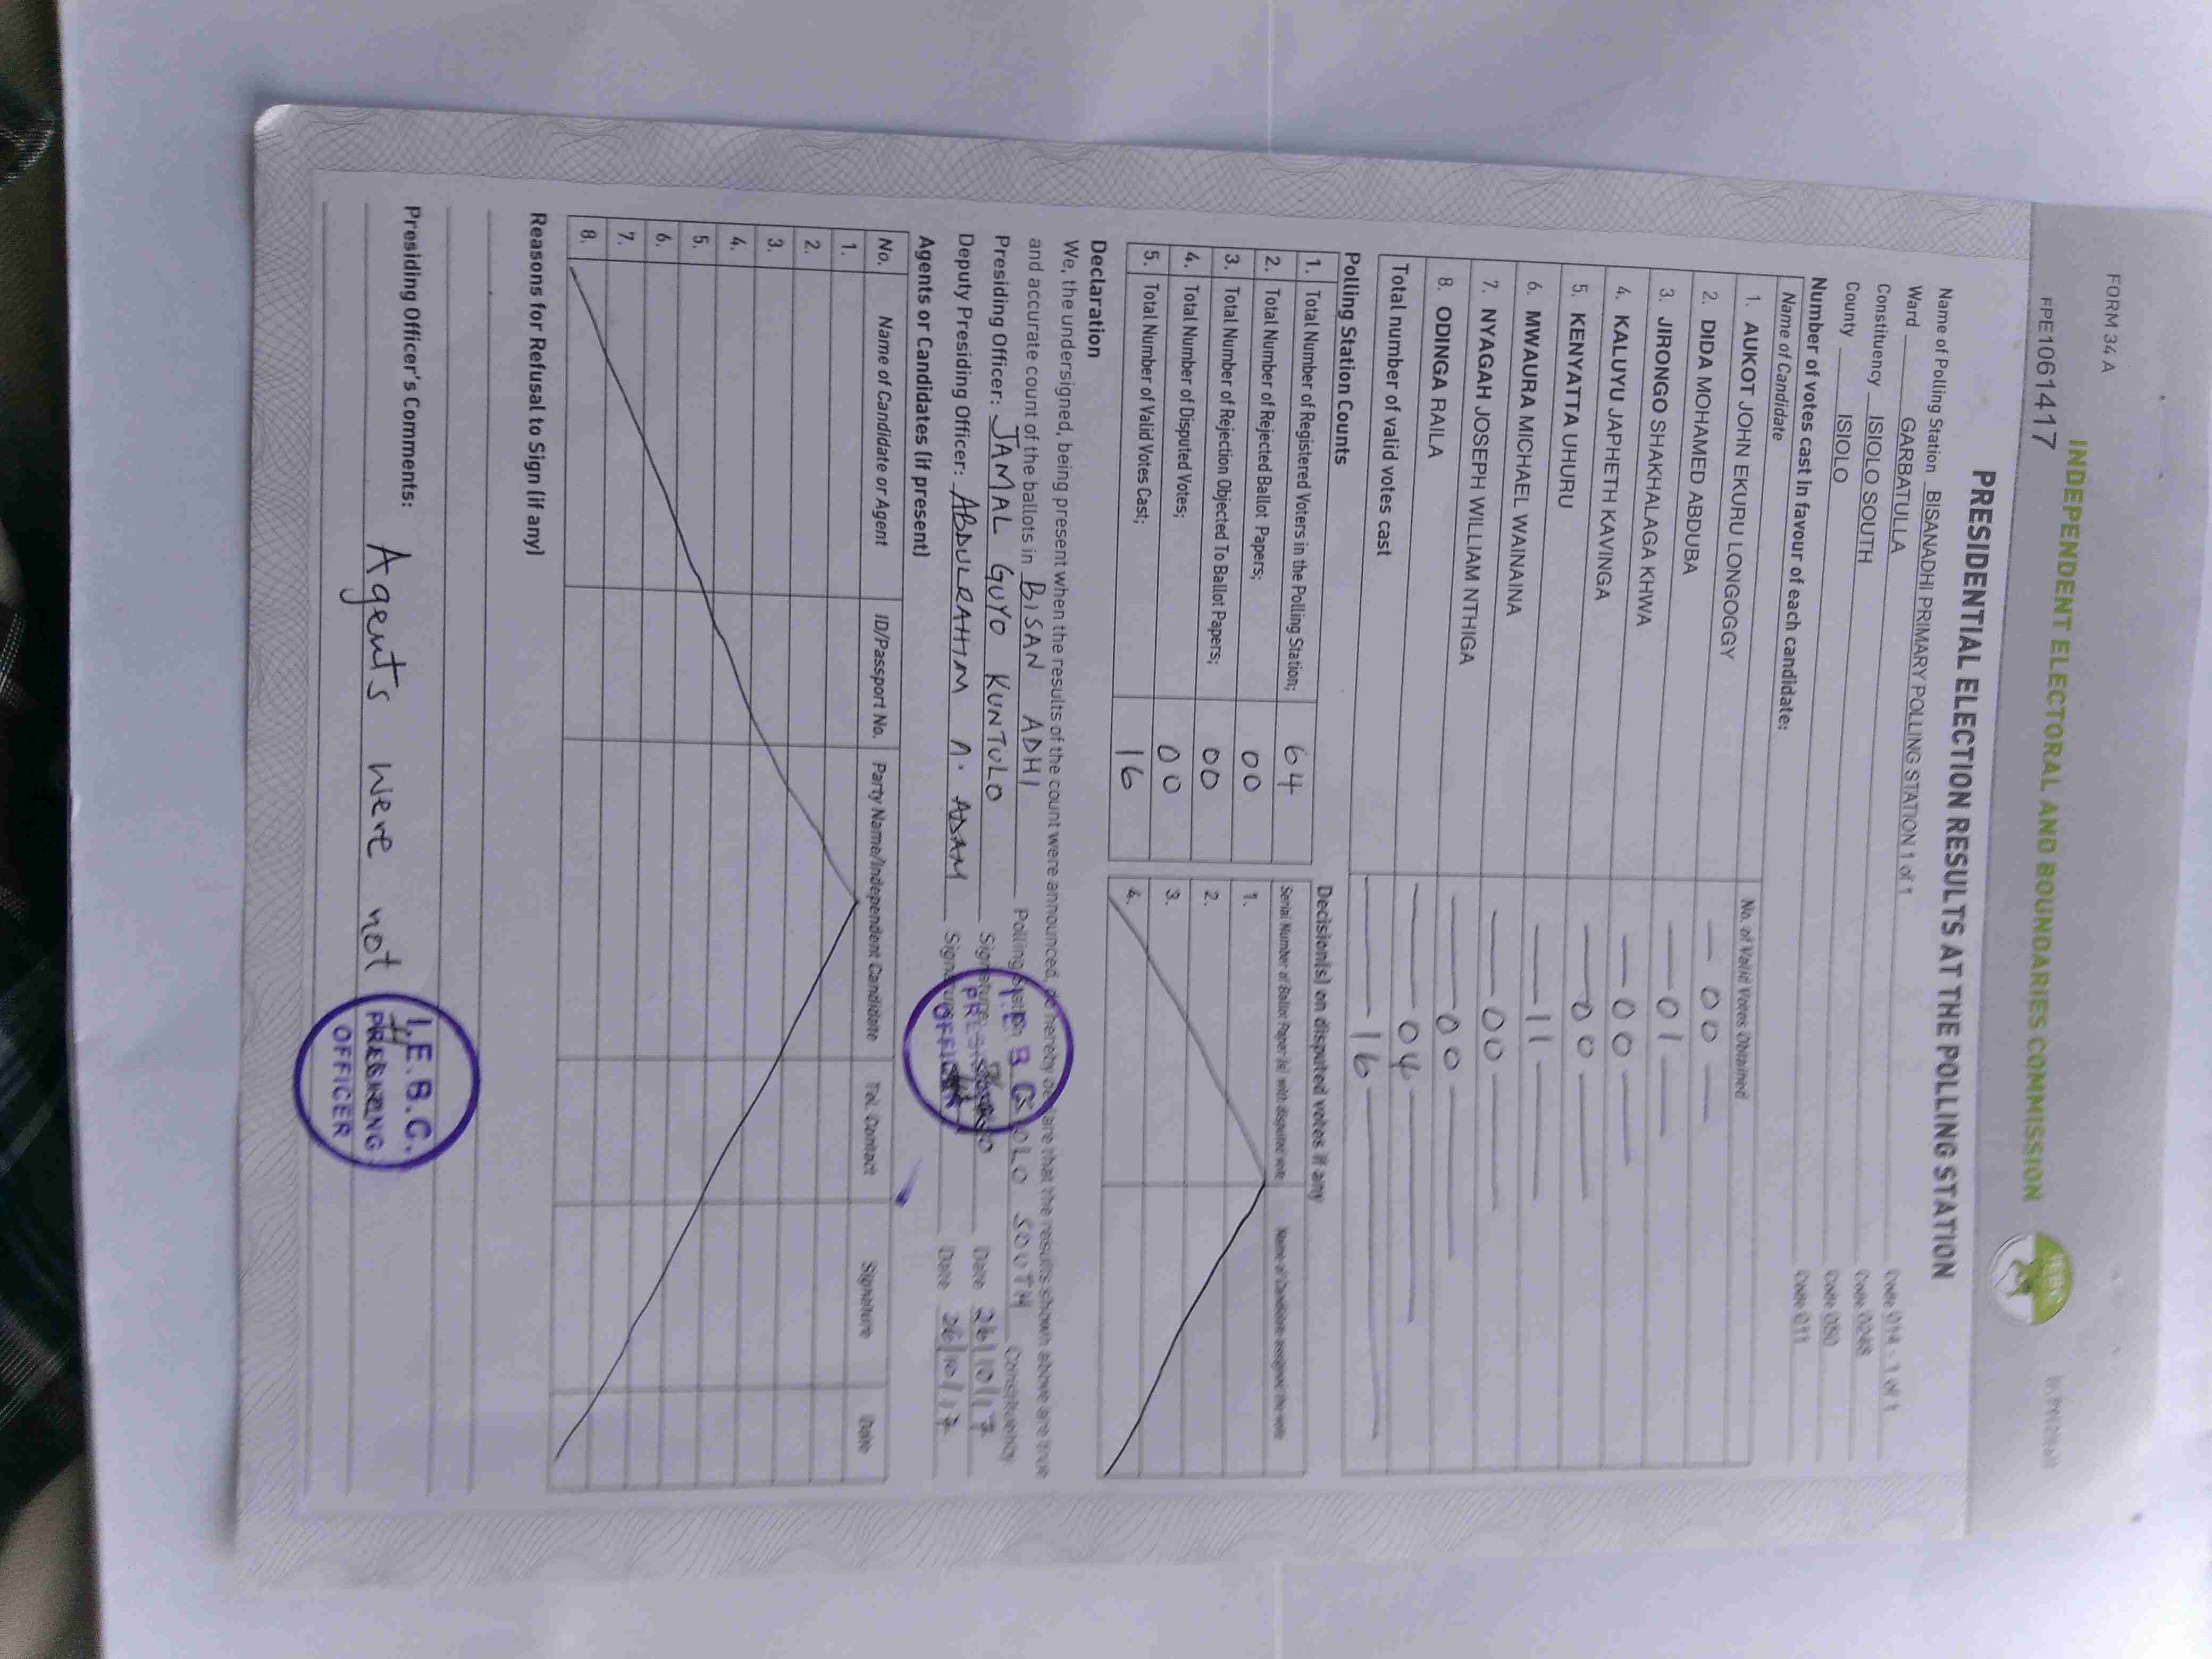 FORM 34 A
INDEPENDENT ELECTORAL AND BOUNDARIES COMMISSION
IEBC
FPE1061417
PRESIDENTIAL ELECTION RESULTS AT THE POLLING STATION
Name of Polling Station BISANADHI PRIMARY POLLING STATION 1 of 1 Code 014 - 1 of 1
Ward GARBATULLA Code 0248
Constituency ISIOLO SOUTH Code 050
County ISIOLO Code 011
Number of votes cast in favour of each candidate:
Name of Candidate No. of Valid Votes Obtained
1. AUKOT JOHN EKURU LONGOGGY 00
2. DIDA MOHAMED ABDUBA 01
3. JIRONGO SHAKHALAGA KHWA 00
4. KALUYU JAPHETH KAVINGA 00
5. KENYATTA UHURU 11
6. MWAURA MICHAEL WAINAINA 00
7. NYAGAH JOSEPH WILLIAM NTHIGA 00
8. ODINGA RAILA 04
Total number of valid votes cast 16
Polling Station Counts
1. Total Number of Registered Voters in the Polling Station; 64
2. Total Number of Rejected Ballot Papers; 00
3. Total Number of Rejection Objected To Ballot Papers; 00
4. Total Number of Disputed Votes; 00
5. Total Number of Valid Votes Cast; 16
Decision(s) on disputed votes if any
Serial Number of Ballot Paper (s) with disputed vote Name of Candidate assigned the vote
1.
2.
3.
4.
Declaration
We, the undersigned, being present when the results of the count were announced, do hereby declare that the results shown above are true
and accurate count of the ballots in BISAN ADHI Polling Station ISIOLO SOUTH Constituency
Presiding Officer: JAMAL GUYO KUNTULO Signature Date 26/10/17
Deputy Presiding Officer: ABDULRAHIM A. ADAM Signature Date 26/10/17
I.E.B.C.
PRESIDING
OFFICER
Agents or Candidates (if present)
No. Name of Candidate or Agent ID/Passport No. Party Name/Independent Candidate Tel. Contact Signature Date
1.
2.
3.
4.
5.
6.
7.
8.
Reasons for Refusal to Sign (if any)
Presiding Officer's Comments:
Agents were not
I.E.B.C.
PRESIDING
OFFICER